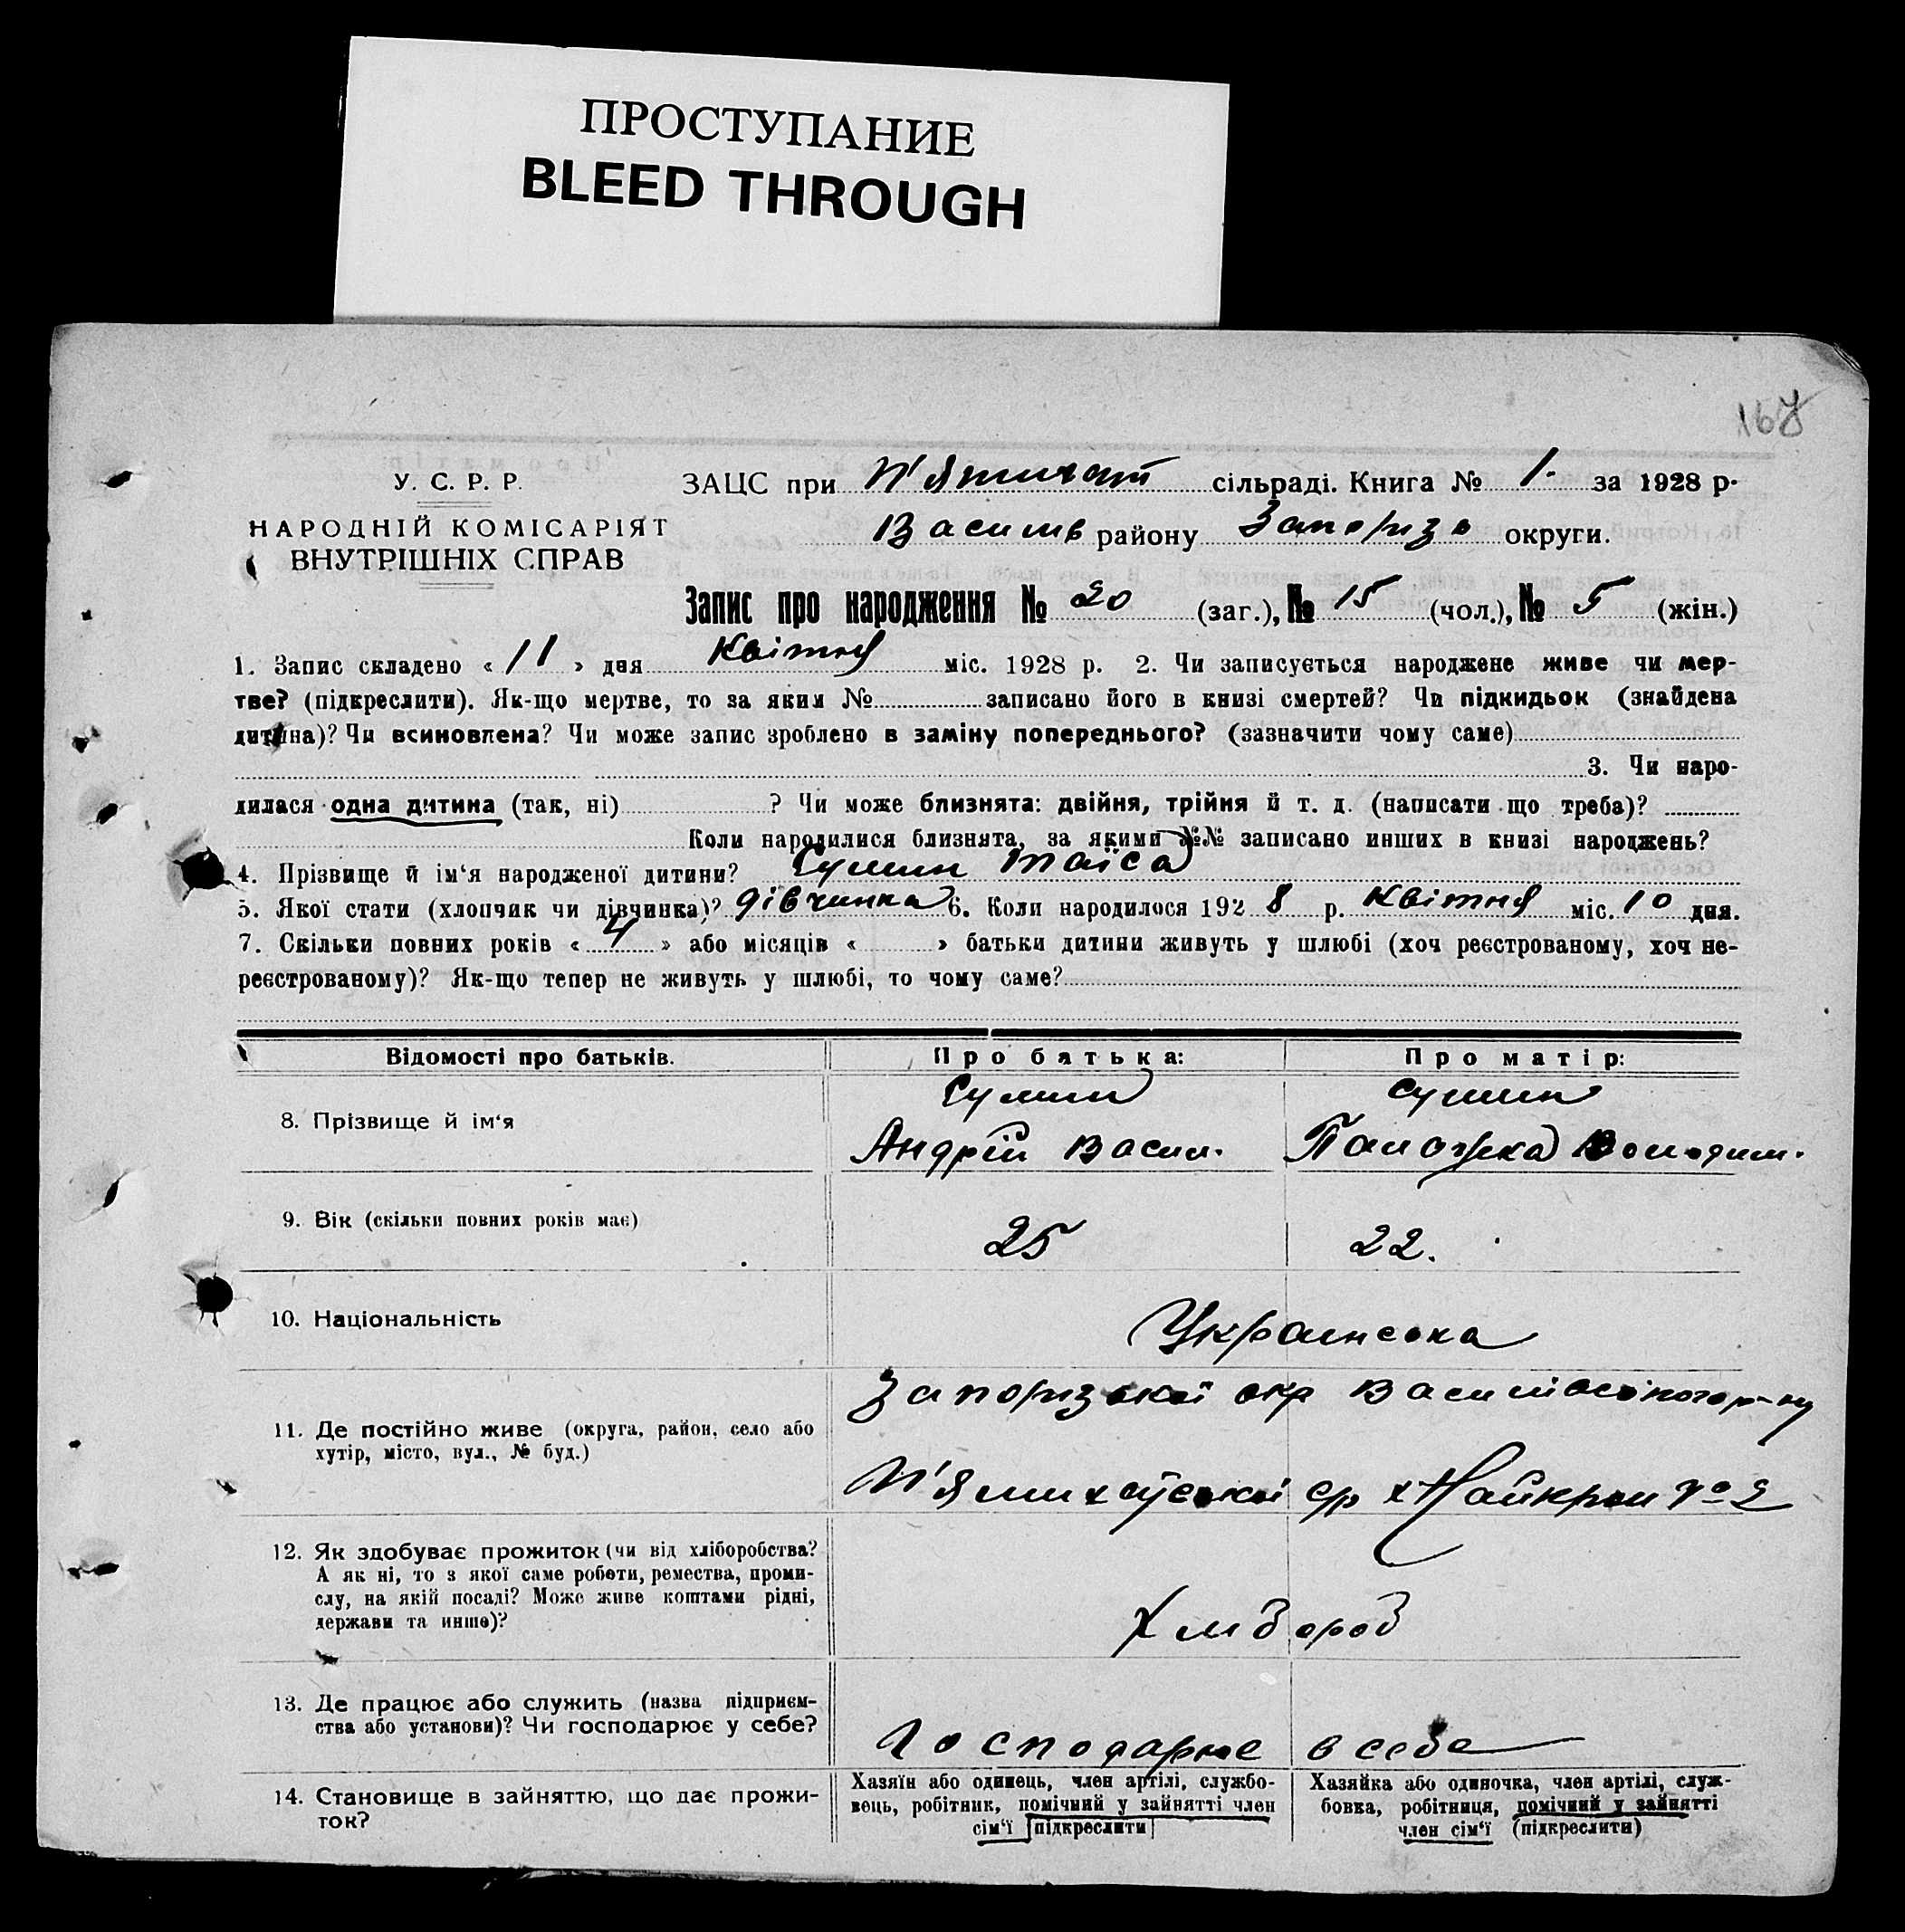 ПРОСТУПАНИЕ
BLEED THROUGH
167
У. С. Р. Р.
НАРОДНІЙ КОМІСАРІЯТ
ВНУТРІШНІХ СПРАВ
ЗАЦС при П'ятихат сільраді. Книга № 1. за 1928 р.
Василів району Запорізь округи.
Запис про народження № 20 (заг.), № 15 (чол.), № 5 (жін.)
1. Запис складено « 11 » дня Квітня міс. 1928 р. 2. Чи записується народжене живе чи мер-
тве? (підкреслити). Як-що мертве, то за яким № записано його в книзі смертей? Чи підкидьок (знайдена
дитина)? Чи всиновлена? Чи може запис зроблено в заміну попереднього? (зазначити чому саме)
3. Чи наро-
дилася одна дитина (так, ні) ? Чи може близнята: двійня, трійня й т. д. (написати що треба)?
Коли народилися близнята, за якими №№ записано инших в книзі народжень?
4. Прізвище й ім‘я народженої дитини? Сушин Таїса
5. Якої стати (хлопчик чи дівчинка)? дівчинка 6. Коли народилося 1928 р. Квітня міс. 10 дня.
7. Скільки повних років « 4 » або місяців « » батьки дитини живуть у шлюбі (хоч реєстрованому, хоч не-
реєстрованому)? Як-що тепер не живуть у шлюбі, то чому саме?
Відомості про батьків. Про батька: Про матір:
8. Прізвище й ім‘я
Сушин Сушин
Андрій Васил. Палажка Володим.
9. Вік (скільки повних років має)
25 22.
10. Національність
Українська
11. Де постійно живе (округа, район, село або
хутір, місто, вул., № буд.)
Запорізької окр Василівського р-ну
П'ятихатської ср х № 2
12. Як здобуває прожиток (чи від хліборобства?
А як ні, то з якої саме роботи, ремества, проми-
слу, на якій посаді? Може живе коштами рідні,
держави та инше)?
Хлібороб
13. Де працює або служить (назва підприєм-
ства або установи)? Чи господарює у себе?
Господарює в себе
14. Становище в зайняттю, що дає прожи-
ток?
Хазяїн або одинець, член артілі, службо-
вець, робітник, помічний у зайнятті член
сім‘ї (підкреслити)
Хазяйка або одиночка, член артілі, служ-
бовка, робітниця, помічний у зайнятті
член сім‘ї (підкреслити)